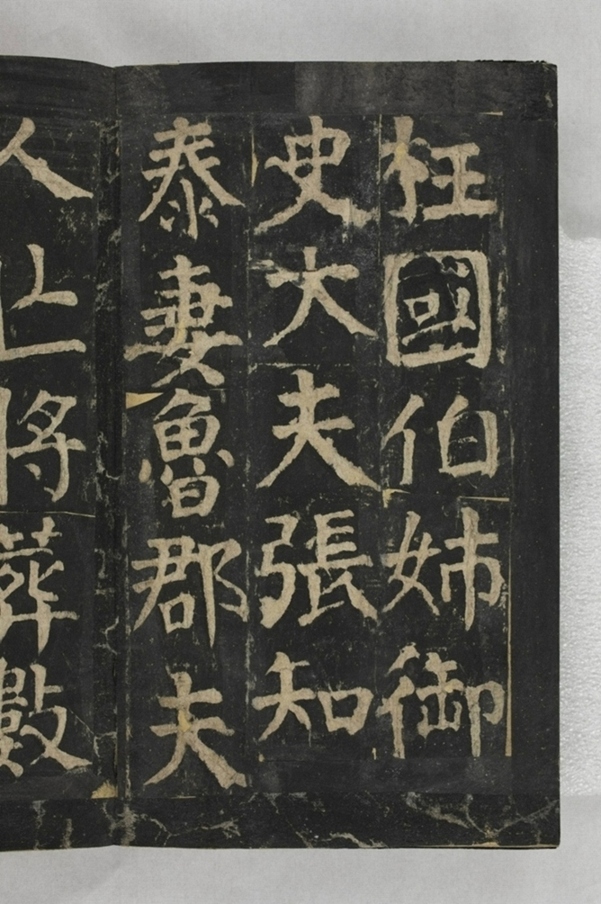 柱國伯姉御
史大夫張知
泰妻魯郡夫
人亡將葬數